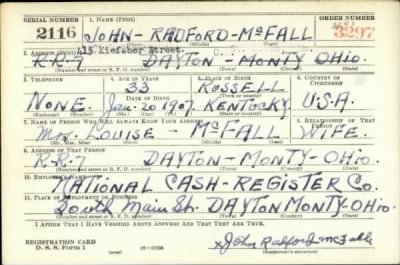 SERIAL NUMBER 1. NAME (Print) ORDER NUMBER
2116 JOHN - RADFORD - McFALL 3297
(First) (Middle) (Last)
2. ADDRESS (Print) 415 Kiefaber Street.
R.R.7 DAYTON - MONTY OHIO.
(Number and street or R. F. D. number) (Town) (County) (State)
3. TELEPHONE 4. AGE IN YEARS 5. PLACE OF BIRTH 6. COUNTRY OF CITIZENSHIP
33 RUSSELL
DATE OF BIRTH (Town or county)
NONE. Jan. 20 1907. KENTUCKY. U.S.A.
(Exchange) (Number) (Mo.) (Day) (Yr.) (State or country)
7. NAME OF PERSON WHO WILL ALWAYS KNOW YOUR ADDRESS 8. RELATIONSHIP OF THAT PERSON
Mrs. LOUISE - McFALL WIFE.
(Mr., Mrs., Miss) (First) (Middle) (Last)
9. ADDRESS OF THAT PERSON
R.R.7 DAYTON - MONTY - OHIO.
(Number and street or R. F. D. number) (Town) (County) (State)
10. EMPLOYER'S NAME
NATIONAL CASH - REGISTER Co.
11. PLACE OF EMPLOYMENT OR BUSINESS
South Main St. DAYTON MONTY - OHIO.
(Number and street or R. F. D. number) (Town) (County) (State)
I AFFIRM THAT I HAVE VERIFIED ABOVE ANSWERS AND THAT THEY ARE TRUE.
REGISTRATION CARD
D. S. S. Form 1 (over) x John Radford McFall
(Registrant's signature)